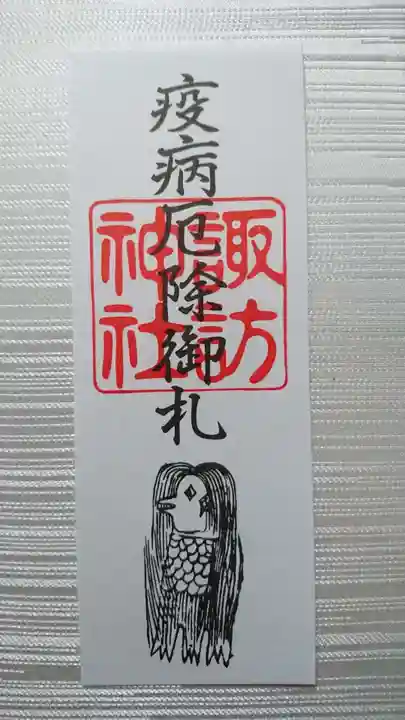 疫病厄除御札
諏訪
神社